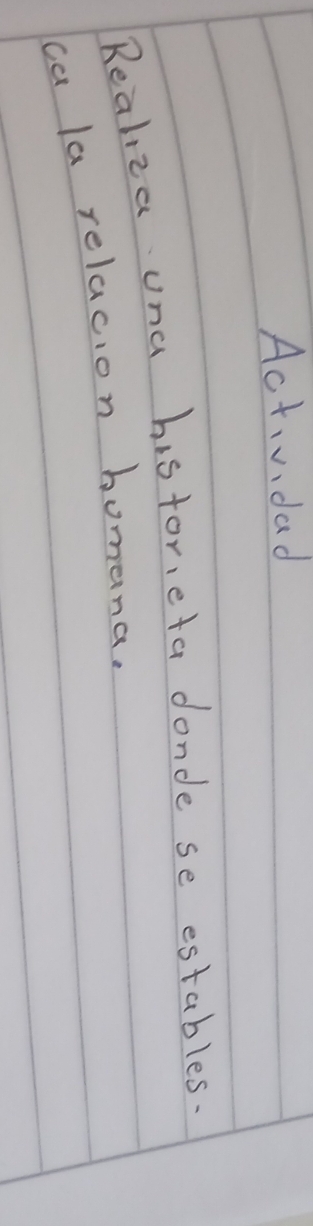 Actividad
Realiza una historieta donde se establés-
ca la relacion humana.